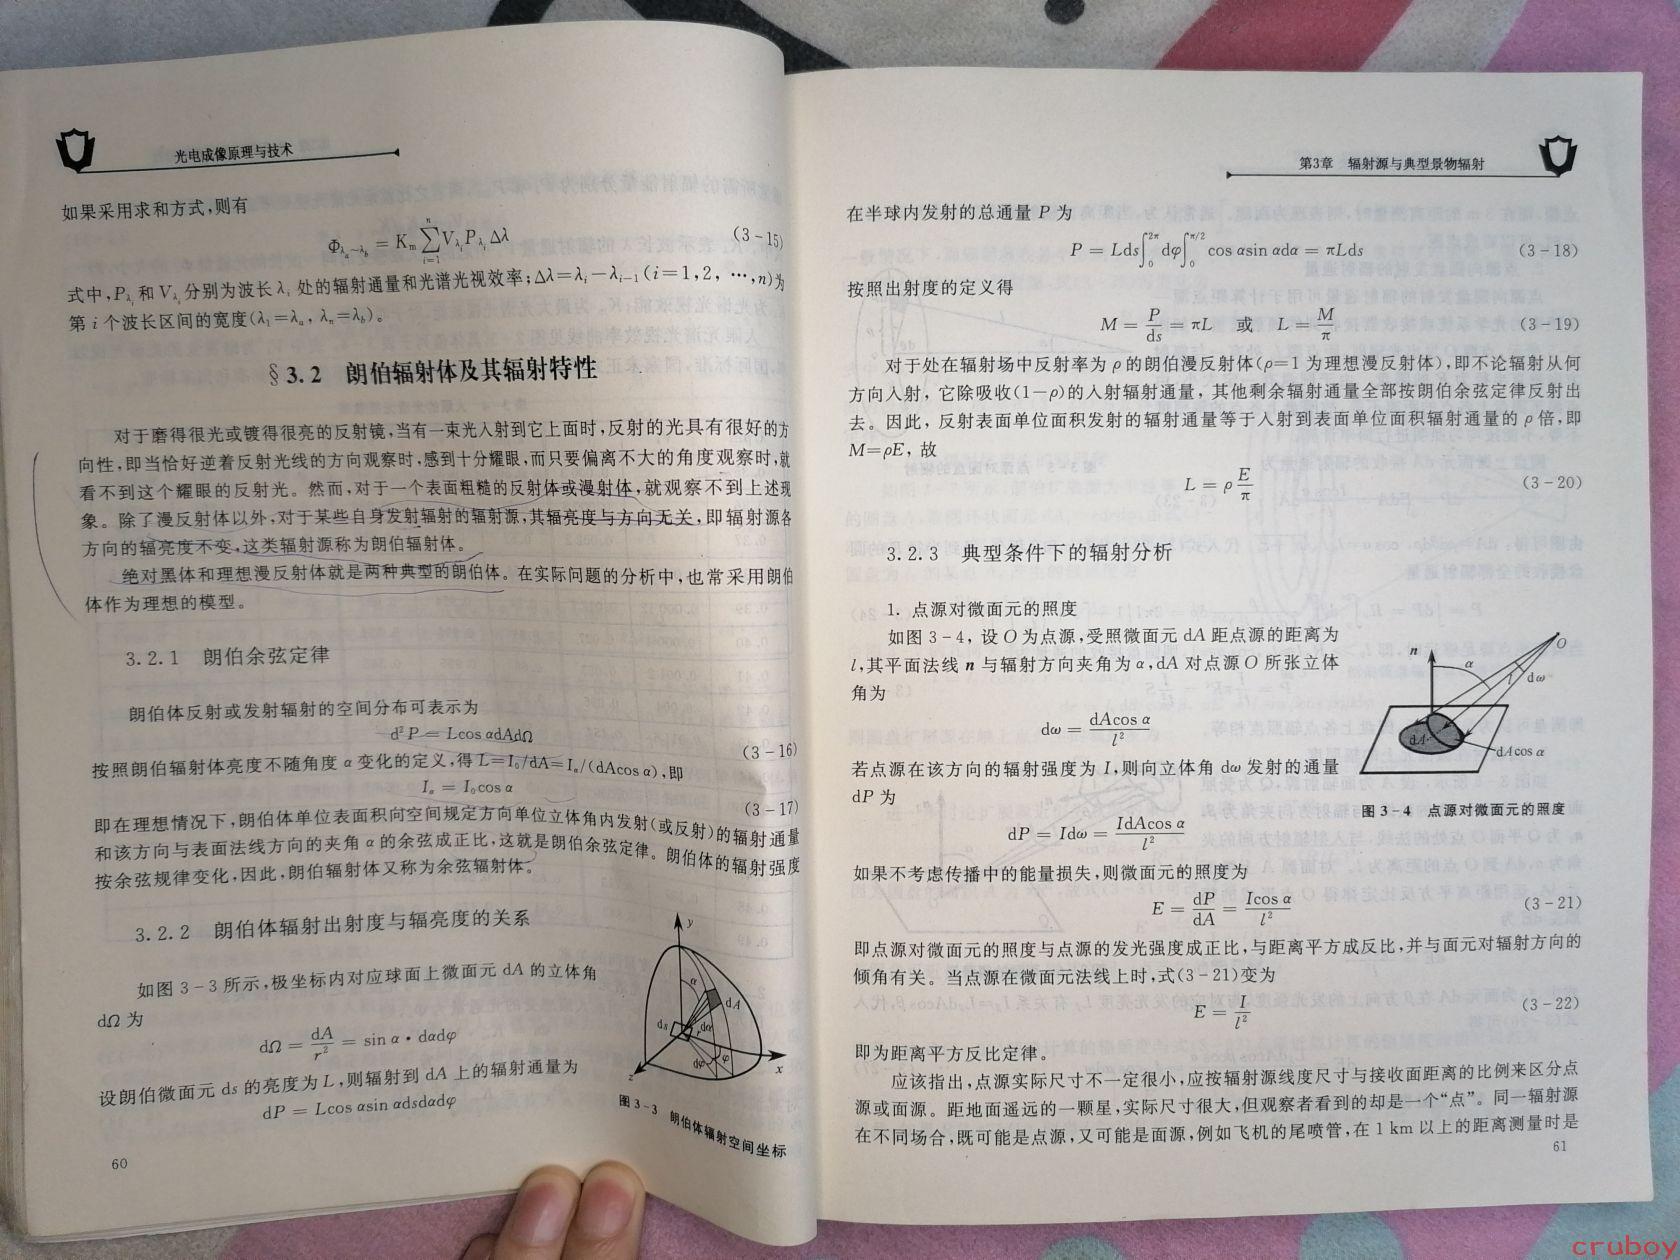 光电成像原理与技术
如果采用求和方式,则有
Φλₐ~λ_b = Kₘ∑ⁿᵢ₌₁VλᵢPλᵢΔλ (3-15)
式中,Pλᵢ 和 Vλᵢ 分别为波长 λᵢ 处的辐射通量和光谱光视效率;Δλ=λᵢ-λᵢ₋₁(i=1,2, …,n)为
第 i 个波长区间的宽度(λ₁=λₐ, λₙ=λ_b)。
§3.2 朗伯辐射体及其辐射特性
对于磨得很光或镀得很亮的反射镜,当有一束光入射到它上面时,反射的光具有很好的方
向性,即当恰好逆着反射光线的方向观察时,感到十分耀眼,而只要偏离不大的角度观察时,就
看不到这个耀眼的反射光。然而,对于一个表面粗糙的反射体或漫射体,就观察不到上述现
象。除了漫反射体以外,对于某些自身发射辐射的辐射源,其辐亮度与方向无关,即辐射源各
方向的辐亮度不变,这类辐射源称为朗伯辐射体。
绝对黑体和理想漫反射体就是两种典型的朗伯体。在实际问题的分析中,也常采用朗伯
体作为理想的模型。
3.2.1 朗伯余弦定律
朗伯体反射或发射辐射的空间分布可表示为
d²P = Lcos αdAdΩ (3-16)
按照朗伯辐射体亮度不随角度 α 变化的定义,得 L=I₀/dA=Iα/(dAcos α),即
Iα = I₀cos α (3-17)
即在理想情况下,朗伯体单位表面积向空间规定方向单位立体角内发射(或反射)的辐射通量
和该方向与表面法线方向的夹角 α 的余弦成正比,这就是朗伯余弦定律。朗伯体的辐射强度
按余弦规律变化,因此,朗伯辐射体又称为余弦辐射体。
3.2.2 朗伯体辐射出射度与辐亮度的关系
如图 3-3 所示,极坐标内对应球面上微面元 dA 的立体角
dΩ 为
dΩ = dA/r² = sin α·dαdφ
设朗伯微面元 ds 的亮度为 L,则辐射到 dA 上的辐射通量为
dP = Lcos αsin αdsdαdφ
y
α
dA
ds
r
dα
dφ
φ
z
x
图 3-3 朗伯体辐射空间坐标
60
第3章 辐射源与典型景物辐射
在半球内发射的总通量 P 为
P = Lds∫₀^2π dφ∫₀^π/2 cos αsin αdα = πLds (3-18)
按照出射度的定义得
M = P/ds = πL 或 L = M/π (3-19)
对于处在辐射场中反射率为 ρ 的朗伯漫反射体(ρ=1 为理想漫反射体),即不论辐射从何
方向入射,它除吸收(1-ρ)的入射辐射通量,其他剩余辐射通量全部按朗伯余弦定律反射出
去。因此,反射表面单位面积发射的辐射通量等于入射到表面单位面积辐射通量的 ρ 倍,即
M=ρE,故
L = ρ E/π (3-20)
3.2.3 典型条件下的辐射分析
1. 点源对微面元的照度
如图 3-4,设 O 为点源,受照微面元 dA 距点源的距离为
l,其平面法线 n 与辐射方向夹角为 α,dA 对点源 O 所张立体
角为
dω = dAcos α/l²
若点源在该方向的辐射强度为 I,则向立体角 dω 发射的通量
dP 为
dP = Idω = IdAcos α/l²
n
α
O
l
dω
dA
dAcos α
图 3-4 点源对微面元的照度
如果不考虑传播中的能量损失,则微面元的照度为
E = dP/dA = Icos α/l² (3-21)
即点源对微面元的照度与点源的发光强度成正比,与距离平方成反比,并与面元对辐射方向的
倾角有关。当点源在微面元法线上时,式(3-21)变为
E = I/l² (3-22)
即为距离平方反比定律。
应该指出,点源实际尺寸不一定很小,应按辐射源线度尺寸与接收面距离的比例来区分点
源或面源。距地面遥远的一颗星,实际尺寸很大,但观察者看到的却是一个“点”。同一辐射源
在不同场合,既可能是点源,又可能是面源,例如飞机的尾喷管,在 1 km 以上的距离测量时是
61
cruboy